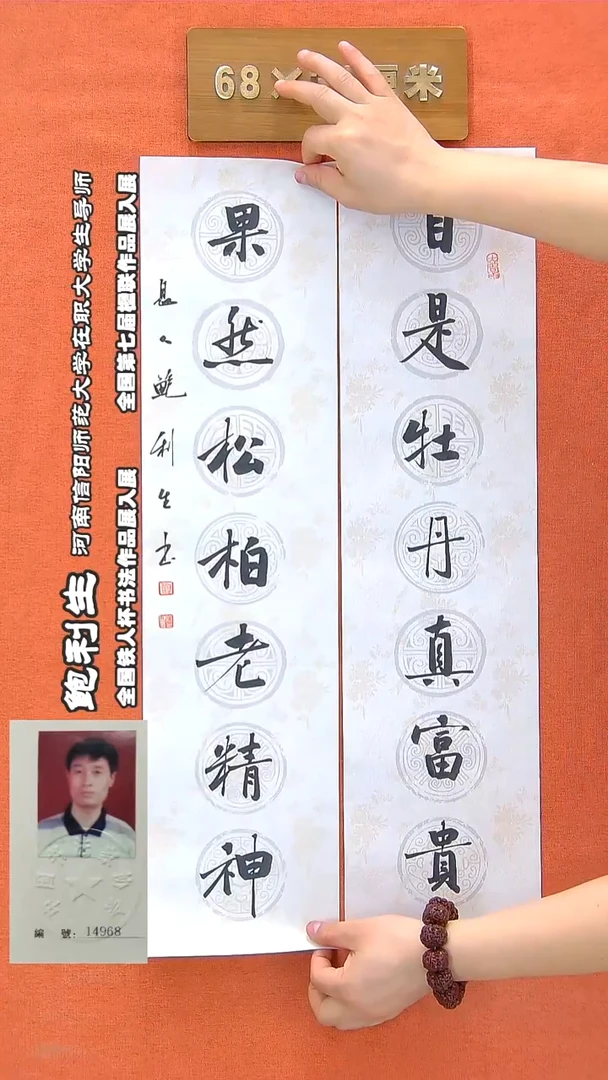 68×厘米
自是牡丹真富貴
果然松柏老精神
鲍利生书
鲍利生 河南信阳师范大学在职大学生导师
全国铁人杯书法作品展入展 全国第七届楹联作品展入展
編 號: 14968